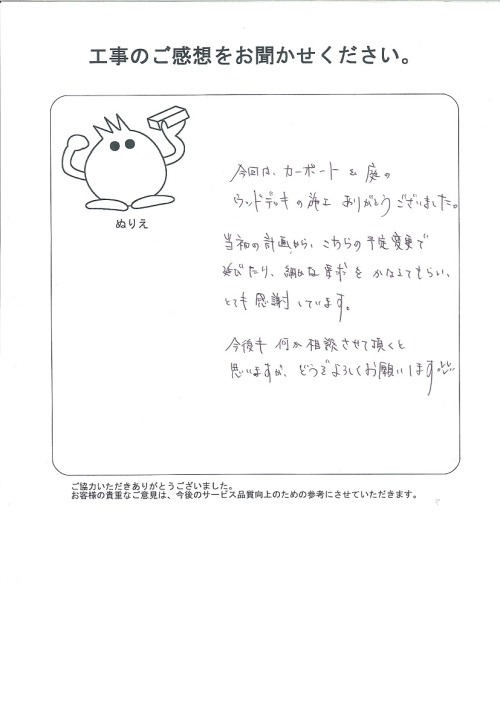 工事のご感想をお聞かせください。
ぬりえ
今回は、カーポート & 庭の
ウッドデッキの施工 ありがとうございました。
当初の計画から、こちらの予定変更で
延びたり、細かな要求を かなえてもらい、
とても 感謝しています。
今後も 何か相談させて頂くと
思いますが、どうぞよろしくお願いします
ご協力いただきありがとうございました。
お客様の貴重なご意見は、今後のサービス品質向上のための参考にさせていただきます。